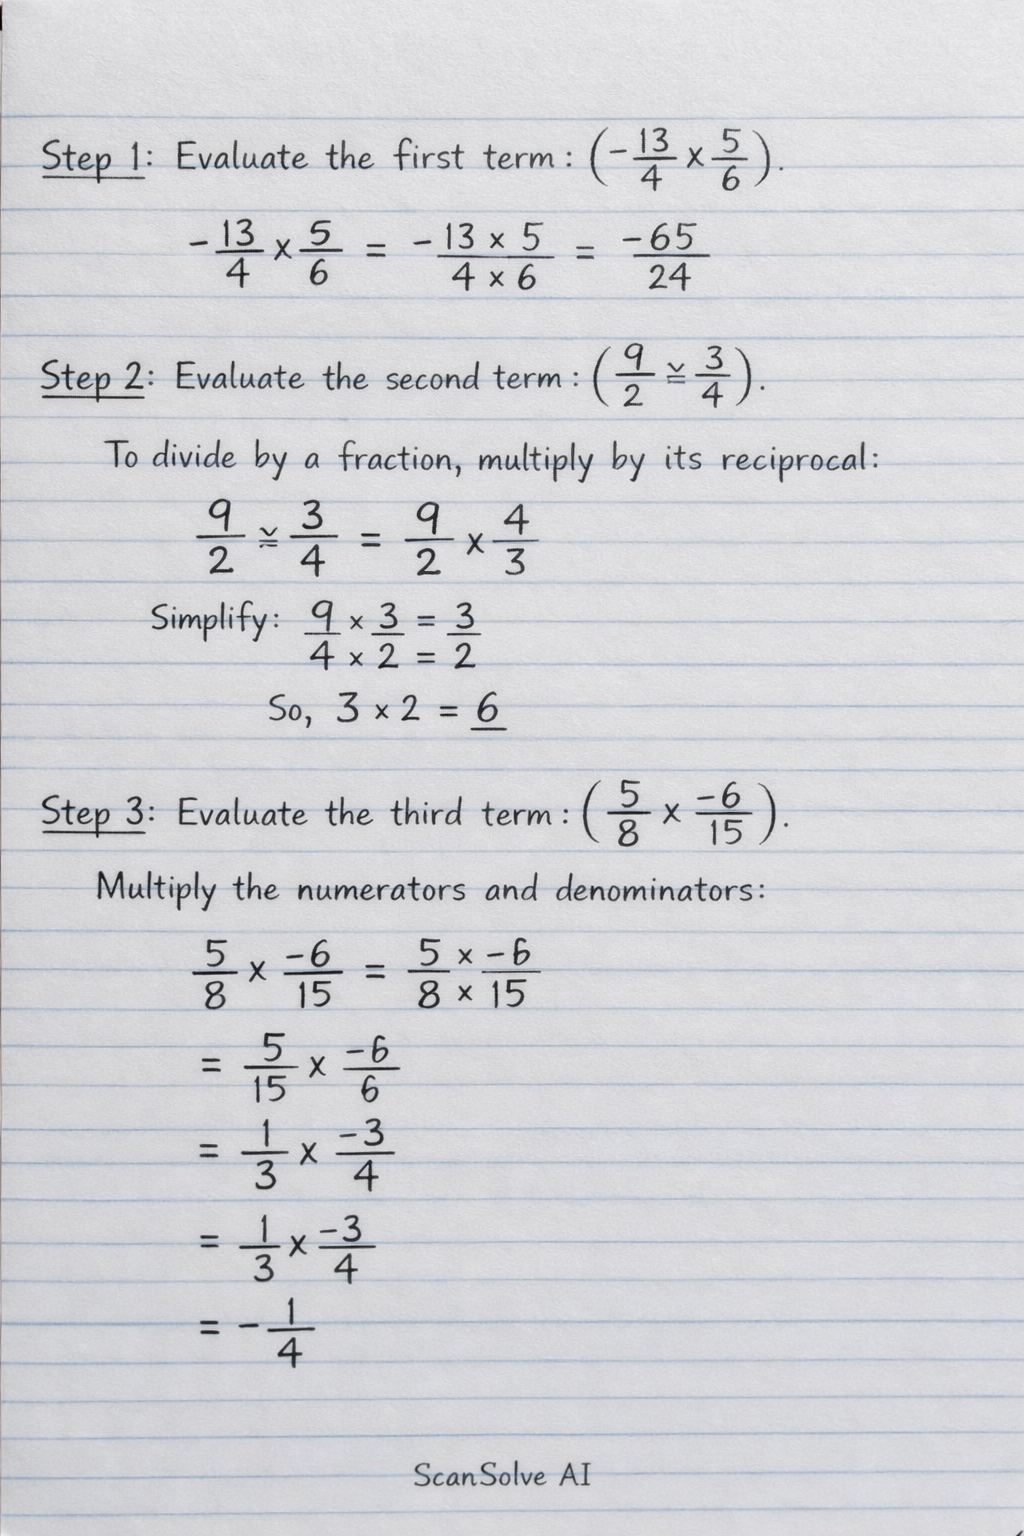 Step 1: Evaluate the first term: (-13/4 × 5/6).
-13/4 × 5/6 = -13 × 5/4 × 6 = -65/24
Step 2: Evaluate the second term: (9/2 ≚ 3/4).
To divide by a fraction, multiply by its reciprocal:
9/2 ≚ 3/4 = 9/2 × 4/3
Simplify: 9/4 × 3/2 = 3/2
× =
So, 3 × 2 = 6
Step 3: Evaluate the third term: (5/8 × -6/15).
Multiply the numerators and denominators:
5/8 × -6/15 = 5 × -6/8 × 15
= 5/15 × -6/6
= 1/3 × -3/4
= 1/3 × -3/4
= -1/4
ScanSolve AI